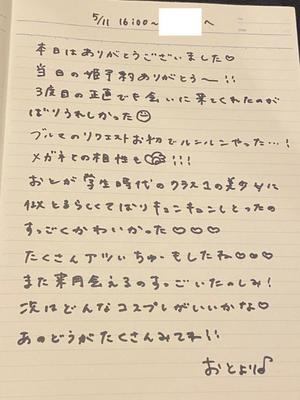 5/11 16:00〜　　へ
本日はありがとうございました♡
当日の姫予約ありがとう〜!!
3度目の正直でも会いに来てくれたのが
ばりうれしかった☺
ブルマのリクエストお初でルンルンやった…!
メガネとの相性も!!!
おとが学生時代のクラス1の美少女に
似とるらしくてばりキュンキュンしとったの
すっごくかわいかった♡♡♡
たくさんアツいちゅーもしたね♡♡♡
また来月会えるのすっごいたのしみ!
次はどんなコスプレがいいかな♡
あのどうがたくさんみてね!!
おとより♪